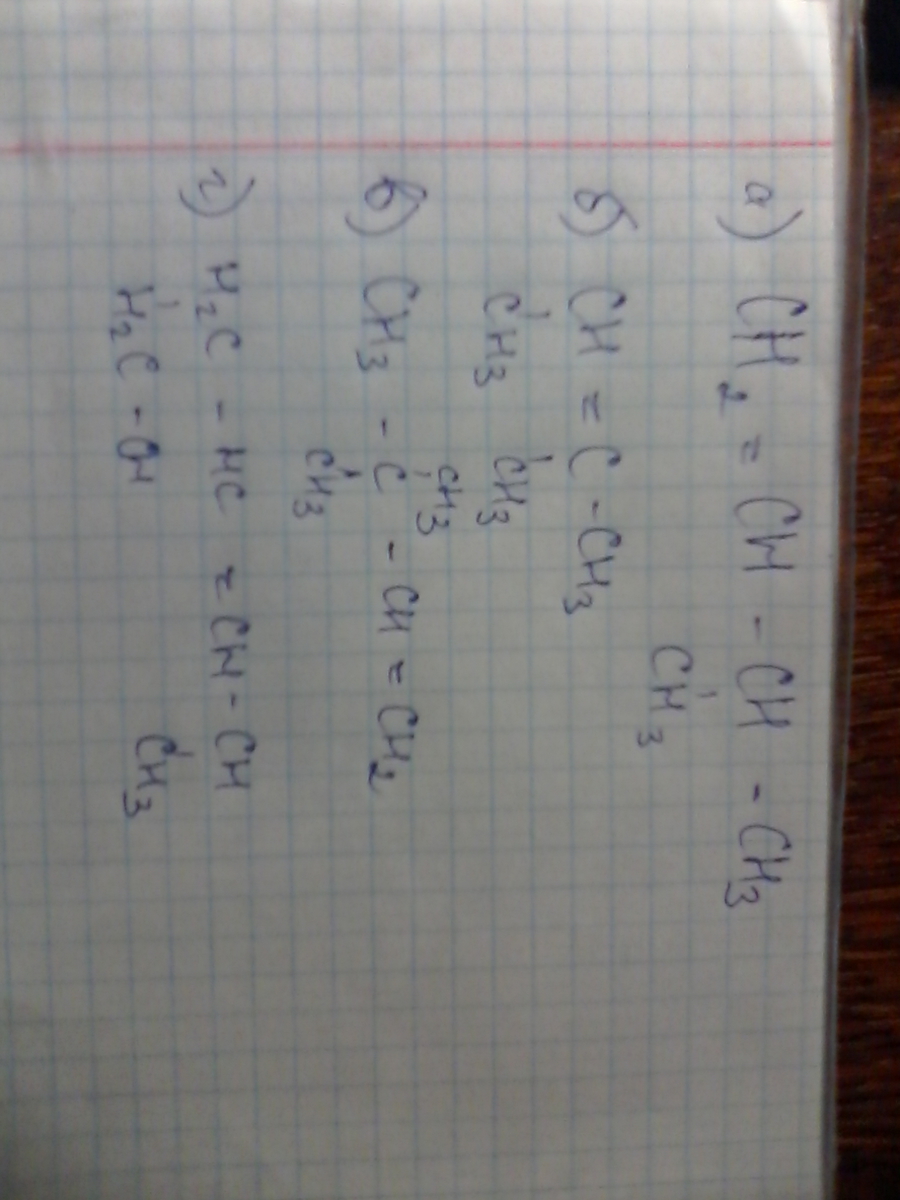 а) CH2 = CH - CH - CH3
CH3
б) CH = C - CH3
CH3 CH3
CH3
в) CH3 - C - CH = CH2
CH3
г) H2C - HC = CH - CH
H2C - OH CH3